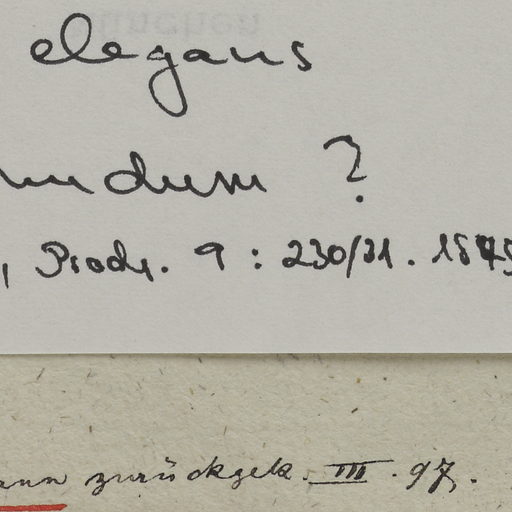 elegans
undum ?
, Prodr. 9 : 230/31 . 1845
ann zurückgek. III. 97.